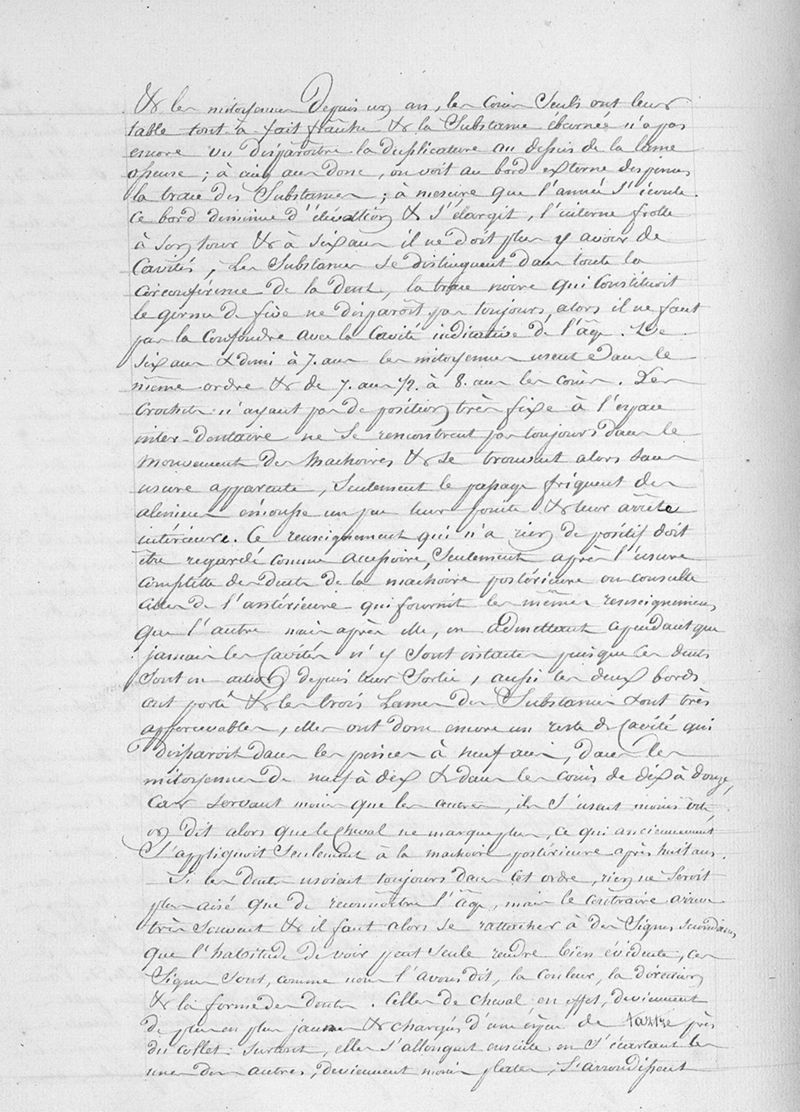 & les mitoyennes depuis un an, les coins seuls ont leur
table tout à fait franche & la substance éburnée n'a pas
encore vu disparoitre la duplicature au dessus de la lame
osseuse ; à cinq ans donc, on voit au bord externe des pinces
la trace des substances ; à mesure que l'année s'écoule
ce bord diminue d'élévation & s'élargit, l'interne frotte
à son tour & à six ans il ne doit plus y avoir de
cavités, les substances se distinguent dans toute la
circonférence de la dent, la trace noire qui constituoit
le germe de fève ne disparoit pas toujours, alors il ne faut
pas la confondre avec la cavité indicative de l'âge. De
six ans & demi à 7. ans les mitoyennes usent dans le
même ordre & de 7. ans ½ à 8. ans les coins. Les
crochets n'ayant pas de position très fixe à l'espace
inter-dentaire ne se rencontrent pas toujours dans le
mouvement des machoires & se trouvent alors sans
usure apparente, seulement le passage fréquent des
alimens émousse un peu leur pointe & leur arrête
intérieure. Ce renseignement qui n'a rien de positif doit
être regardé comme accessoire, seulement après l'usure
complette des dents de la machoire postérieure on consulte
celles de l'antérieure qui fournit les mêmes renseignemens
que l'autre mais après elle, en admettant cependant que
jamais les cavités n'y sont intactes puisque les dents
sont en action depuis leur sortie, aussi les deux bords
ont porté & les trois lames des substances sont très
appercevables, elles ont donc encore un reste de cavité qui
disparoit dans les pinces à neuf ans, dans les
mitoyennes de neuf à dix & dans les coins de dix à douze,
car servant moins que les autres, ils s'usent moins vite
on dit alors que le cheval ne marque plus, ce qui anciennement
s'appliquoit seulement à la machoire postérieure après huit ans.
Si les dents usoient toujours dans cet ordre, rien ne seroit
plus aisé que de reconnoitre l'âge, mais le contraire arrive
très souvent & il faut alors se rattacher à des signes secondaires
que l'habitude de voir peut seule rendre bien évidente, ces
signes sont, comme nous l'avons dit, la couleur, la direction
& la forme des dents. Celles de cheval en effet, deviennent
de plus en plus jaunes & chargés d'une espèce de tartre près
du collet surtout, elles s'allongent ensuite en s'écartant les
unes des autres, deviennent moins plates, s'arrondissent